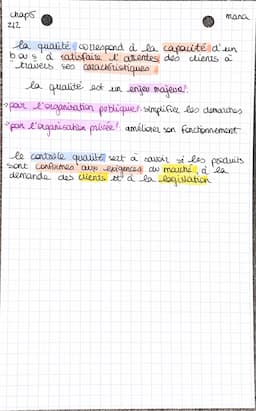 chap5
mana
2/2
la qualité correspond à la capacité d'un
b ou s à satisfaire l'attentes des clients à
travers ses caractéristiques
la qualité est un enjeu majeur:
par l'organisation publique: simplifier les démarches
par l'organisation privée: améliorer son fonctionnement
le contrôle qualité sert à savoir si les produits
sont conformes aux exigences du marché, à la
demande des clients et à la législation